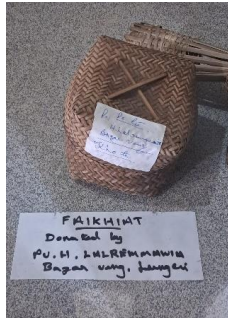 Pu
Bazar veng
FAIKHIAT
Donated by
Pu. H. LALREMMAWIA
Bazar veng, Lunglei